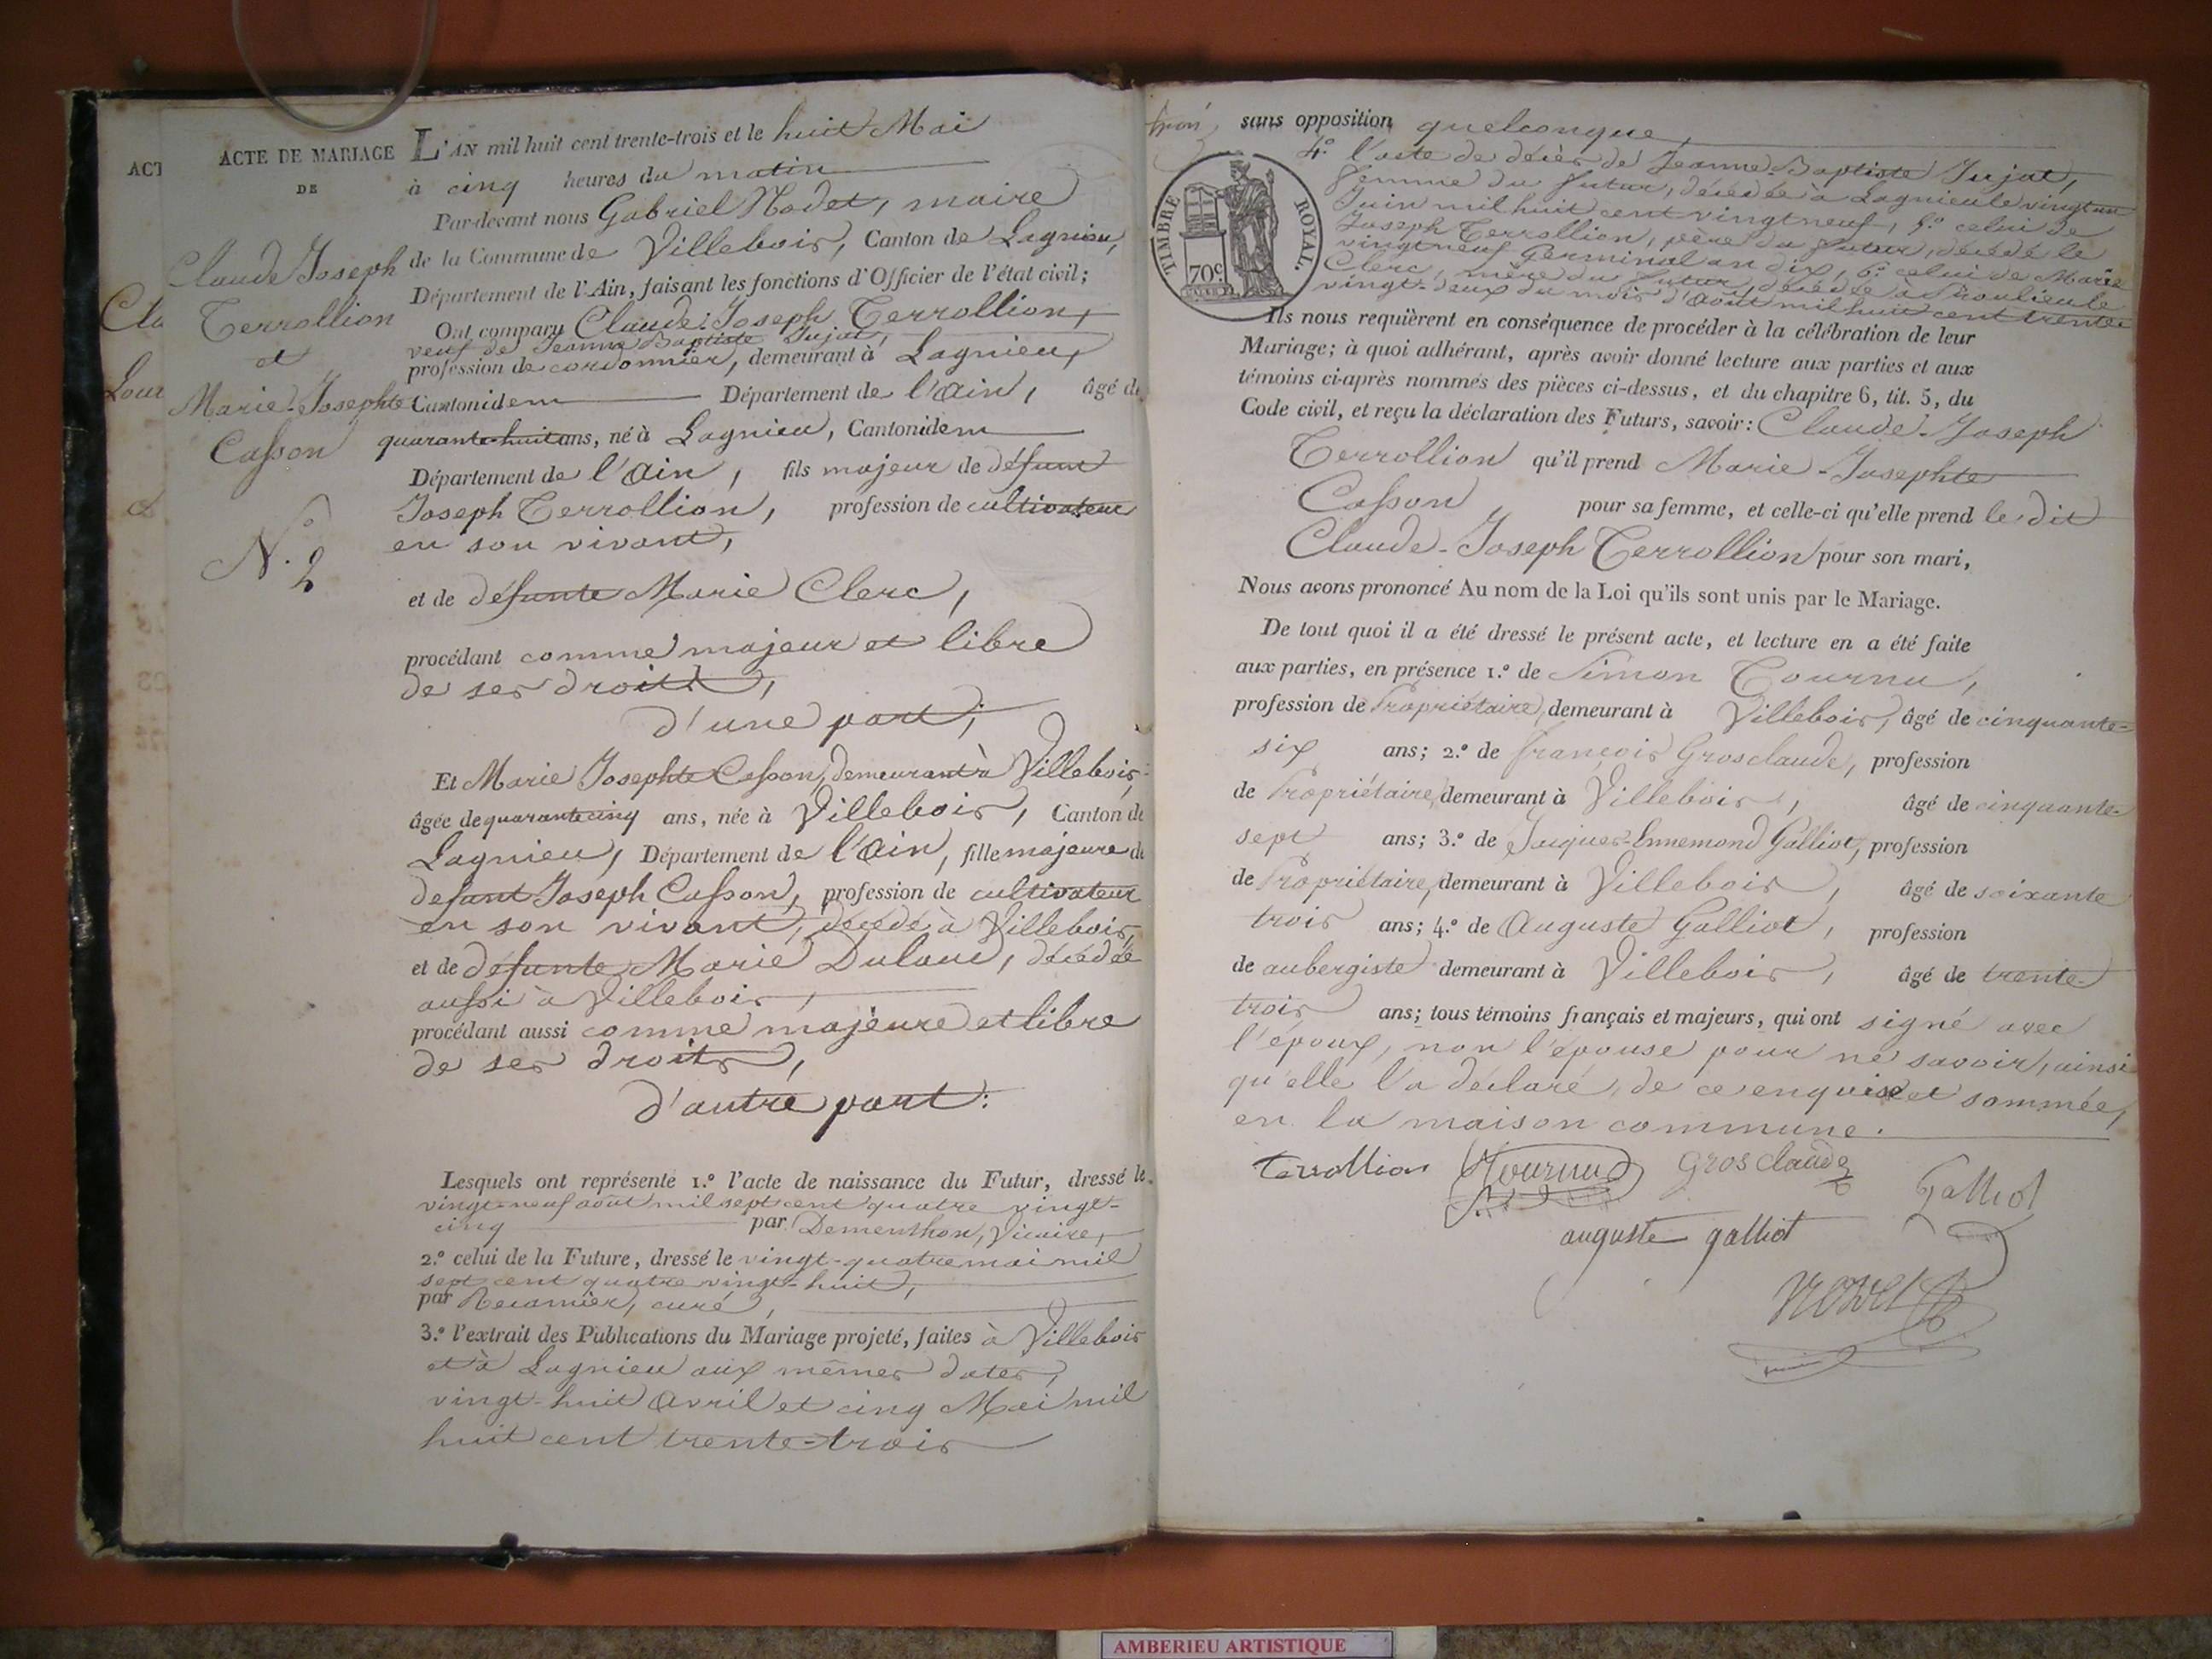 ACT
Cla
Lour
et
ACTE DE MARIAGE
DE
Claude Joseph
Terrollion
et
Marie-Josephte
Casson
N.º 2
L'AN mil huit cent trente-trois et le huit Mai
à cinq heures du matin
Par-devant nous Gabriel Nodet, maire
de la Commune de Villebois, Canton de Lagnieu,
Département de l'Ain, faisant les fonctions d'Officier de l'état civil;
Ont comparu Claude-Joseph Terrollion,
veuf de Jeanne Baptiste Jujat,
profession de cordonnier, demeurant à Lagnieu,
Canton idem Département de l'Ain, âgé de
quarante-huit ans, né à Lagnieu, Canton idem
Département de l'Ain, fils majeur de défunt
Joseph Terrollion, profession de cultivateur
en son vivant,
et de défunte Marie Clerc,
procédant comme majeur et libre
de ses droits,
d'une part,
Et Marie Josephte Casson, demeurant à Villebois,
âgée de quarante cinq ans, née à Villebois, Canton de
Lagnieu, Département de l'Ain, fille majeure de
defunt Joseph Casson, profession de cultivateur
en son vivant, décédé à Villebois,
et de défunte Marie Dulaud, décédée
aussi à Villebois,
procédant aussi comme majeure et libre
de ses droits,
d'autre part:
Lesquels ont représenté 1.º l'acte de naissance du Futur, dressé le
vingt-neuf août mil sept cent quatre vingt-
cinq par Dementhon, Vicaire,
2.º celui de la Future, dressé le vingt-quatre mai mil
sept cent quatre vingt-huit,
par Recamier, curé,
3.º l'extrait des Publications du Mariage projeté, faites à Villebois
et à Lagnieu aux mêmes dates,
vingt-huit Avril et cinq Mai mil
huit cent trente-trois
sans opposition quelconque,
TIMBRE ROYAL.
70c
4.º l'acte de décès de Jeanne-Baptiste Jujat,
femme du futur, décédée à Lagnieu le vingt un
Juin mil huit cent vingt neuf, 5.º celui de
Joseph Terrollion, père du futur, décédé le
vingt neuf Germinal an dix, 6.º celui de Marie
Clerc, mère du futur, décédée à le
vingt-deux du mois d'août mil huit cent trente.
Ils nous requièrent en conséquence de procéder à la célébration de leur
Mariage; à quoi adhérant, après avoir donné lecture aux parties et aux
témoins ci-après nommés des pièces ci-dessus, et du chapitre 6, tit. 5, du
Code civil, et reçu la déclaration des Futurs, savoir: Claude-Joseph
Terrollion qu'il prend Marie-Josephte
Casson pour sa femme, et celle-ci qu'elle prend le dit
Claude-Joseph Terrollion pour son mari,
Nous avons prononcé Au nom de la Loi qu'ils sont unis par le Mariage.
De tout quoi il a été dressé le présent acte, et lecture en a été faite
aux parties, en présence 1.º de Simon Tournu,
profession de Propriétaire, demeurant à Villebois, âgé de cinquante-
six ans; 2.º de françois Grosclaude, profession
de Propriétaire, demeurant à Villebois, âgé de cinquante-
sept ans; 3.º de Jacques-Ennemond Galliot, profession
de Propriétaire, demeurant à Villebois, âgé de soixante
trois ans; 4.º de Auguste Galliot, profession
de aubergiste demeurant à Villebois, âgé de trente-
trois ans; tous témoins français et majeurs, qui ont signé avec
l'époux, non l'épouse pour ne savoir, ainsi
qu'elle l'a déclaré, de ce enquise et sommée,
en la maison commune.
terrollion Tournu Grosclaude
Galliot
auguste galliot
Nodet
AMBERIEU ARTISTIQUE